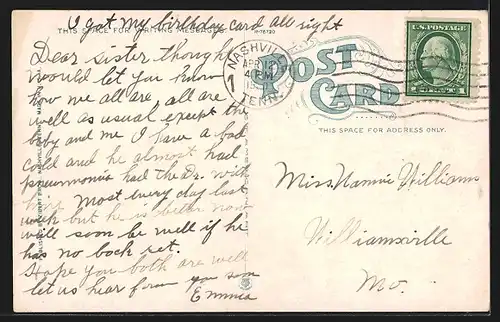 I got my birthday card all right
THIS SPACE FOR WRITING MESSAGES
R-76720
Dear sister thought
would let you know
how we all are. all are
well as usual except the
baby and me I have a bad
cold and he almost had
pneumonia had the Dr. with
him Most every day last
week but he is better now
will soon be well if he
has no back set.
Hope you both are well
let us hear from you soon
Emma
NASHVILLE
APR
4 PM
TENN.
POST
CARD
THIS SPACE FOR ADDRESS ONLY.
U.S. POSTAGE
1 1
Miss Nannie Williams
Williamsville
Mo.